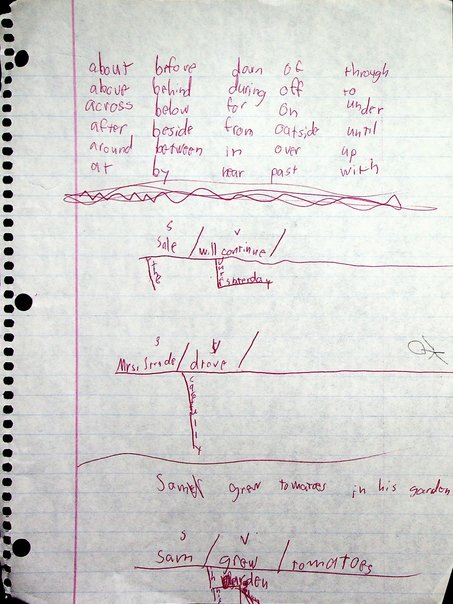 about before down of through
above behind during off to
across below for on under
after beside from outside until
around between in over up
at by near past with
S V
Sale / will continue /
the until saterday
S V
Mrs. Smide / drove /
OK
Sam grew tomatoes in his garden
S V
Sam / grew / tomatoes
garden